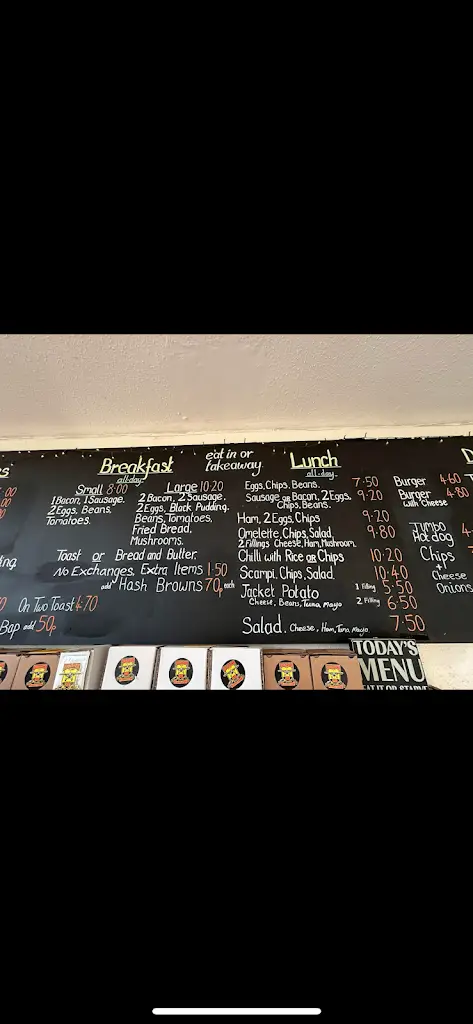 Breakfast
all day
Small 8.00
1 Bacon, 1 Sausage,
2 Eggs, Beans,
Tomatoes.
Large 10.20
2 Bacon, 2 Sausage,
2 Eggs, Black Pudding,
Beans, Tomatoes,
Fried Bread,
Mushrooms.
Toast or Bread and Butter.
No Exchanges, Extra Items 1.50
add Hash Browns 70p each
On Two Toast 4.70
Bap add 50p
eat in or
takeaway
Lunch
all day
Eggs, Chips, Beans. 7.50
Sausage or Bacon, 2 Eggs, 9.20
Chips, Beans.
Ham, 2 Eggs, Chips 9.20
Omelette, Chips, Salad, 9.80
2 Fillings Cheese, Ham, Mushroom
Chilli with Rice or Chips 10.20
Scampi, Chips, Salad. 10.40
Jacket Potato 1 Filling 5.50
Cheese, Beans, Tuna, Mayo 2 Filling 6.50
Salad. Cheese, Ham, Tuna, Mayo 7.50
Burger 4.60
Burger 4.80
with Cheese
Jumbo
Hot dog
Chips
+
Cheese
Onions
TODAY'S
MENU
EAT IT OR STARVE